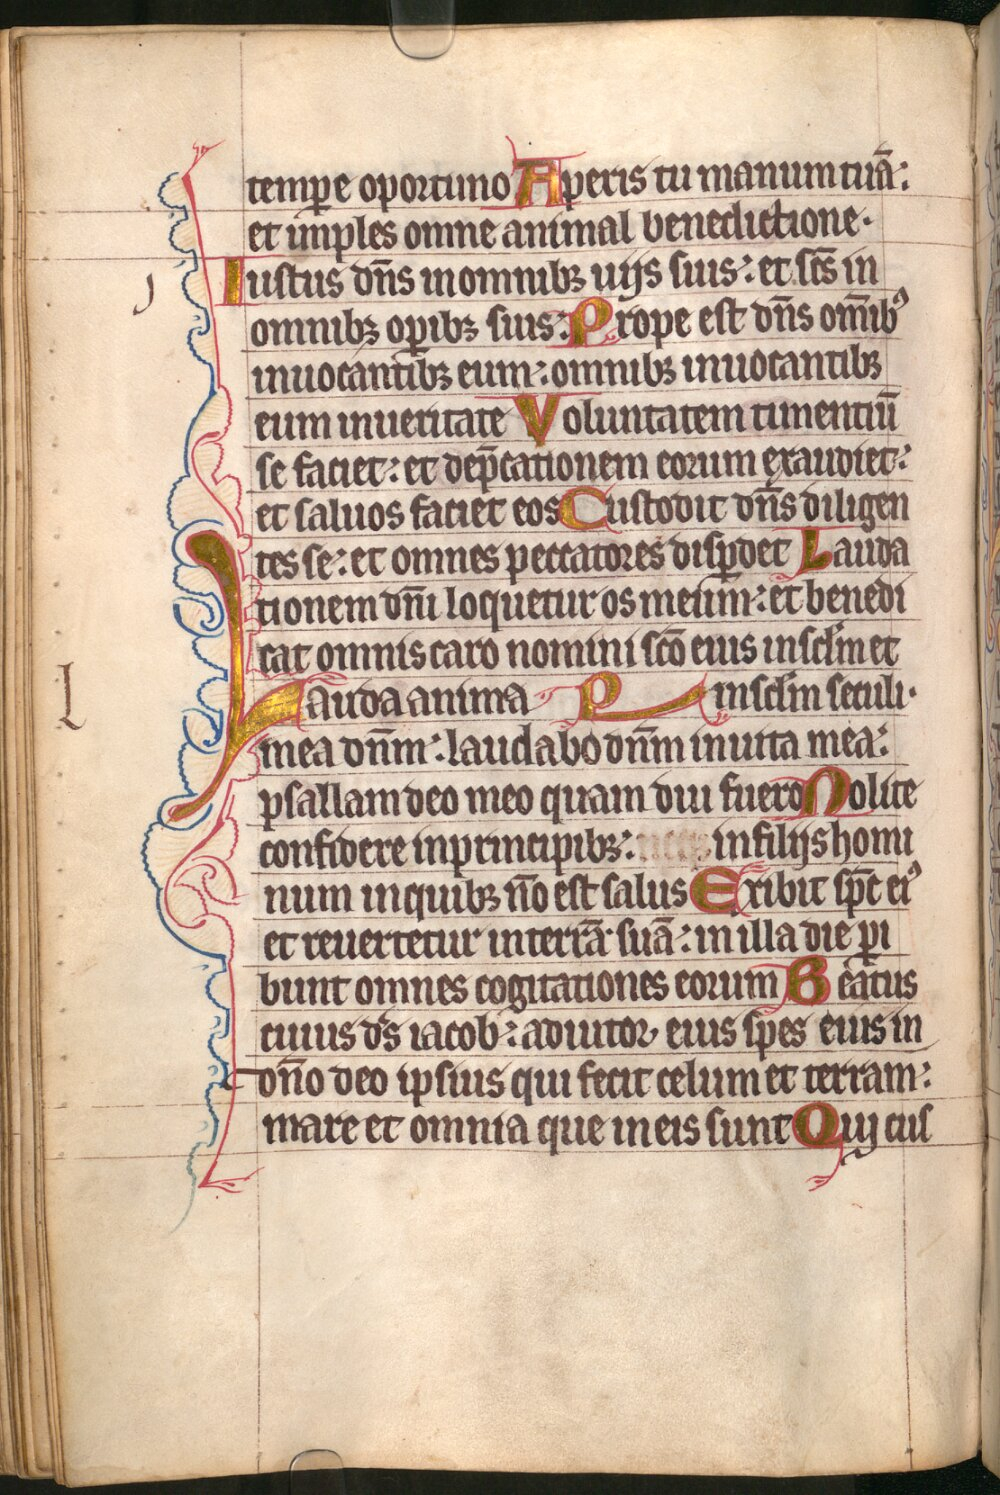 tempe oportuno Aperis tu manum tuā:
et imples omne animal benedictione.
Iustus dn̄s in omnibꝫ uijs suis: et sc̄s in
omnibꝫ oꝑibꝫ suis: Prope est dn̄s om̄ibꝰ
inuocantibꝫ eum: omnibꝫ inuocantibꝫ
eum in ueritate Voluntatem timentiū
se faciet: et dep̄cationem eorum exaudiet:
et saluos faciet eos Custodit dn̄s diligen
tes se: et omnes peccatores disꝑdet Lauda
tionem dn̄i loquetur os meum: et benedi
cat omnis caro nomini sc̄o eius in sclm̄ et
Lauda anima P in sclm̄ seculi.
mea dn̄m: laudabo dn̄m in uita mea:
psallam deo meo quam diu fuero Nolite
confidere in principibꝫ: in filijs homi
num in quibꝫ no̅ est salus Exibit sp̄c eiꝰ
et reuertetur in terrā suā: in illa die ꝑi
bunt omnes cogitationes eorum Beatus
cuius ds̄ iacob: adiutor eius spes eius in
dn̄o deo ipsius qui fecit celum et terram:
mare et omnia que in eis sunt Quj cus
J
L